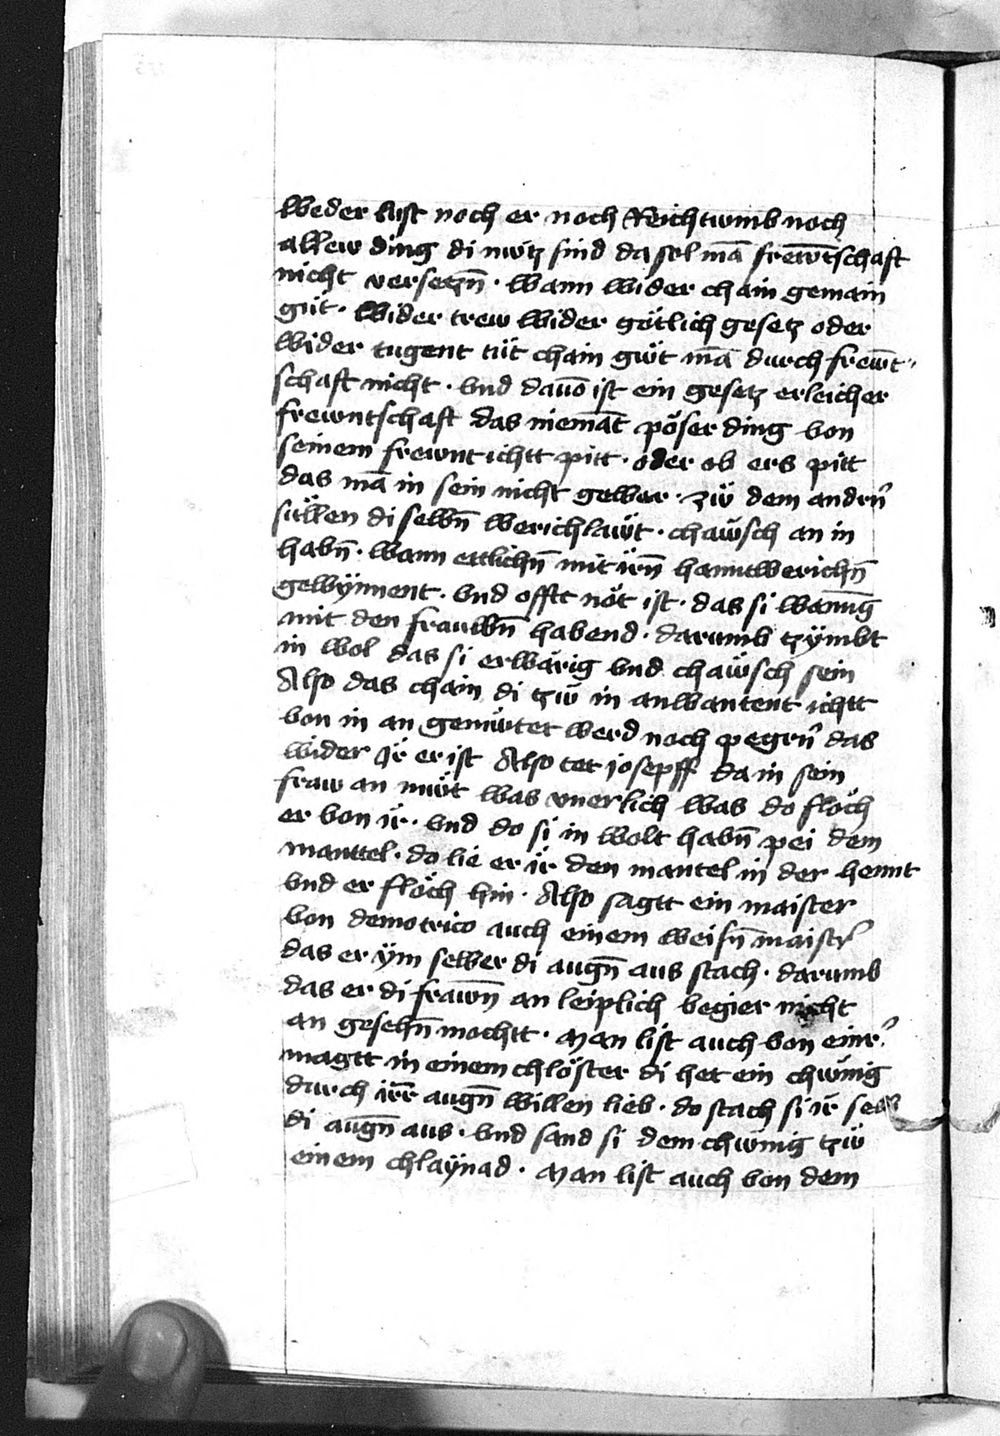 Weder lust noch er noch Reichtumb noch
allew ding di nütz sind da sol mā frewn̄tschaft
nicht versetzn̄ · wann wider chain gemain
güt · Wider trew wider götlich gesetz oder
Wider tugent tüt chain güt mā durch frewn̄t⸗
schaft nicht · vnd dauō ist ein gesetz erleicher
frewntschaft das niemāt pöser ding von
seinem frewnt ichtt pitt · oder ob ers pitt
das mā in sein nicht gewer · zw̋ dem andrn̄
süllen di selbn̄ werichlaẅt · chaẅsch an in
habn̄ · wann ettlichn̄ mit irn̄ hanntwerichn̄
gewÿnnent · vnd offtt nöt ist · das si wanūg
mit den frauwn̄ habend · darumb tzÿmbt
in wol das si erwärig vnd chaẅsch sein
Also das chain di tzẅ in anwantent ichtt
von in an gemütet werd noch pegern̄ das
wider ir̈ er ist Also tet josepff da in sein
fraw an müt was vnerlich was do flöch
er von ir̈ · vnd do si in wolt habn̄ pei dem
manttel · do lie er ir̈ den mantel in der hennt
vnd er flöch hin · Also sagtt ein maister
von demotrico auch einem weisn̄ maistr̄
das er ÿm selber di augn̄ aus stach · darumb
das er di frawn̄ an leiplich begier nicht
an gesehn̄ mochtt · Man list auch von einr̄
magtt in einem chlöster di het ein chünig
durch irr̄ augn̄ willen lieb · do stach si ir̄
di augn̄ aus · vnd sand si dem chünig tzẅ
einem chlaÿnad · Man list auch von dem